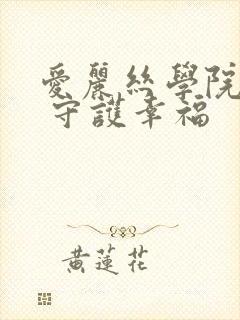 愛麗絲學院
守護幸福
黃蓮花